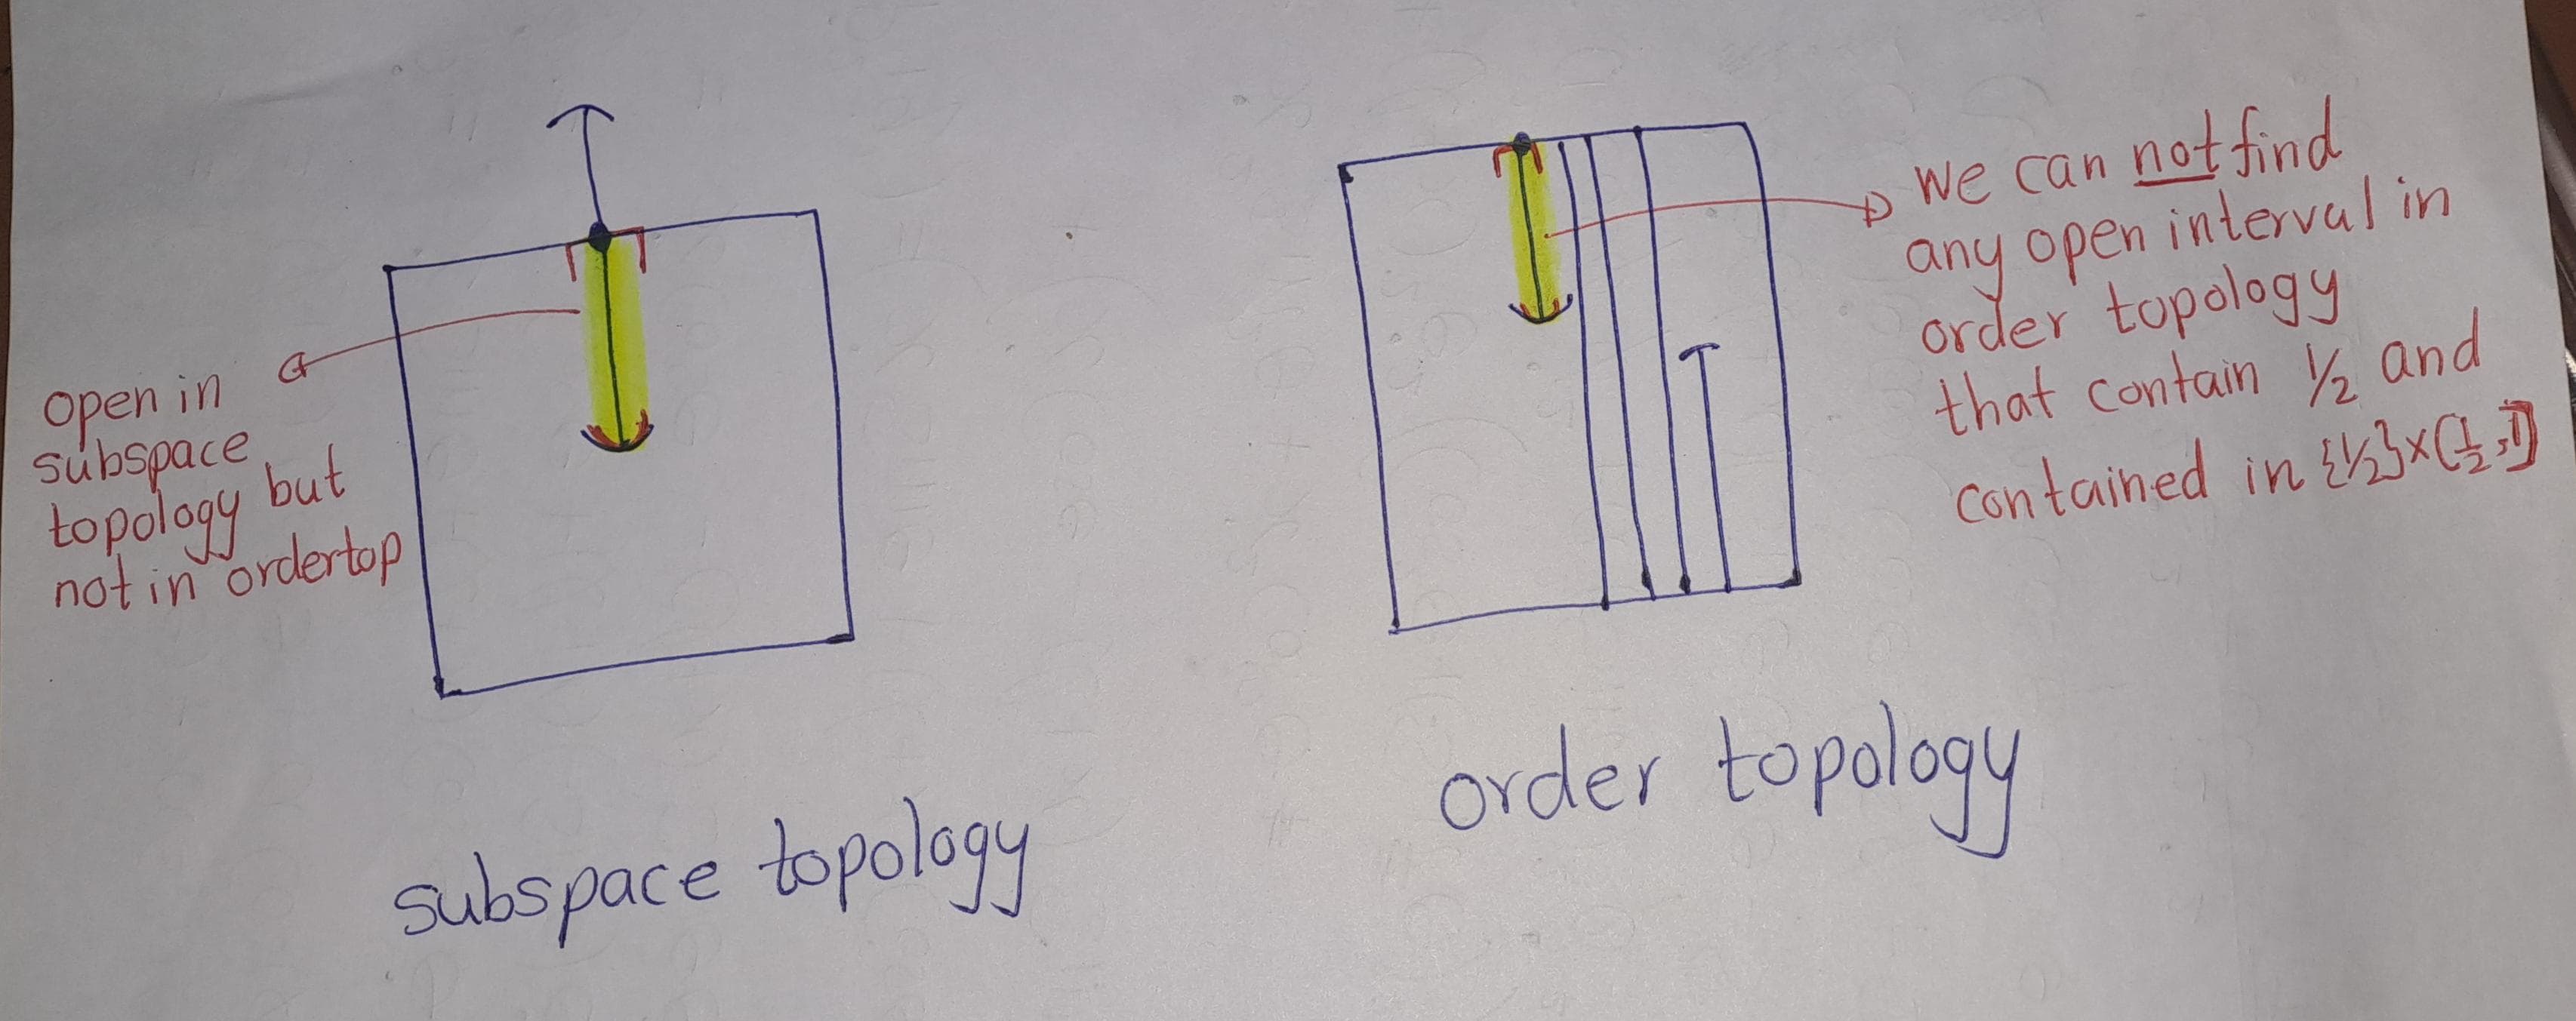 open in
subspace
topology but
not in ordertop
subspace topology
we can not find
any open interval in
order topology
that contain 1/2 and
contained in {1/2}×(1/2,1]
order topology